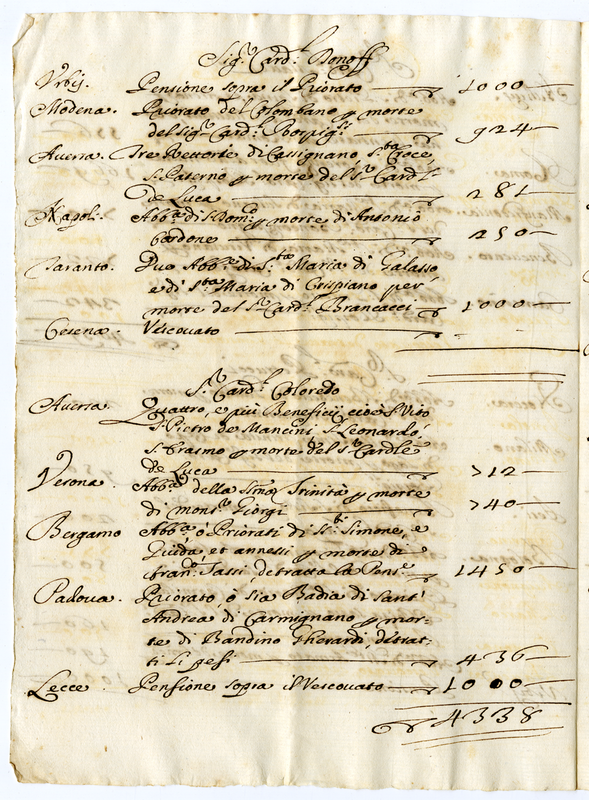 Sig.r Card.l Bonoff
Vrbij. Pensione sopra il Priorato 1000
Modena. Priorato del Colombano p morte
del sig.r Card.l 924
Auersa. Tre Rettorie di Cassignano, S.ta Croce,
S. Paterno p morte del S.r Card.l
de Luca 281
Napoli. Abb.a di S. Dom.co p morte di Antonio
Cordone 250
Taranto. Due Abb.e di S.ta Maria di Galasso
e di S.ta Maria di Crispiano per
morte del S.r Card.l Brancacci 1000
Cesena. Vescouato
S.r Card.l Coloredo
Auersa. Quattro, e più Beneficij cioè S. Vito
S. Pietro de Mancini S. Leonardo,
S. Erasmo p morte del S.r Card.le
de Luca 712
Verona. Abb.a della S.ma Trinità p morte
di mons.r Giorgi 740
Bergamo Abb.a, ò Priorati di S.ti Simone, e
Giuda, et annessi p morte di
fran.co Tassi, detratta la Pens.e 1450
Padoua. Priorato, ò sia Badia di Sant'
Andrea di Carmignano p mor-
te di Bandino Gherardi, detrat-
ti li pesi 436
Lecce. Pensione sopra il Vescouato 1000
4338